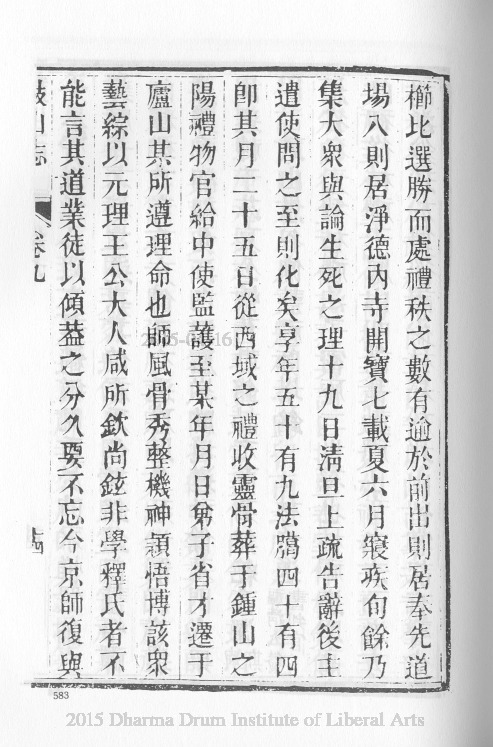 櫛比選勝而處禮秩之數有逾於前出則居奉先道
場入則居淨德內寺開寶七載夏六月寢疾旬餘乃
集大衆與論生死之理十九日淸旦上疏告辭後主
遣使問之至則化矣享年五十有九法臈四十有四
卽其月二十五日從西域之禮收靈骨葬于鍾山之
陽禮物官給中使監護至某年月日弟子省才遷于
廬山某所遵理命也師風骨秀整機神穎悟博該衆
藝綜以元理王公大人咸所欽尚鉉非學釋氏者不
能言其道業徒以傾葢之分久要不忘今京師復與
山志
卷九
583
2015 Dharma Drum Institute of Liberal Arts